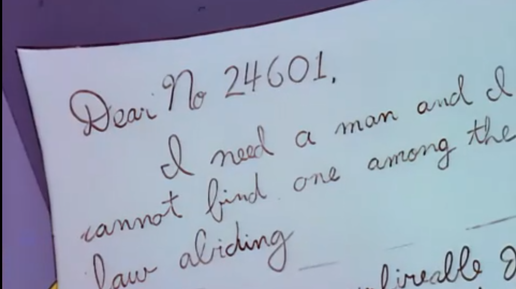 Dear No 24601,
I need a man and I
cannot find one among the
law abiding